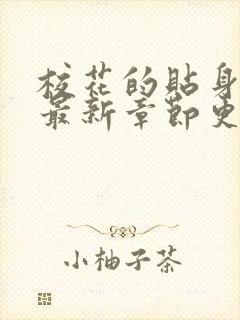 校花的贴身
最新章节更
小柚子茶